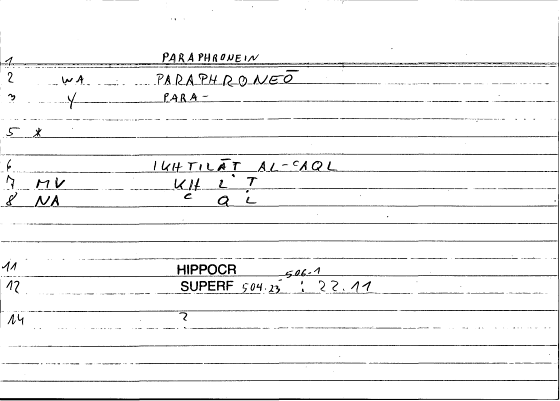 1 PARAPHRONEIN
2 WA PARAPHRONEŌ
3 Y PARA-
5 *
6 IKHTILĀṬ AL-ʿAQL
7 MV KH L Ṭ
8 NA ʿ Q L
11 HIPPOCR 506-1
12 SUPERF 504.23 : 22.11
14 ?